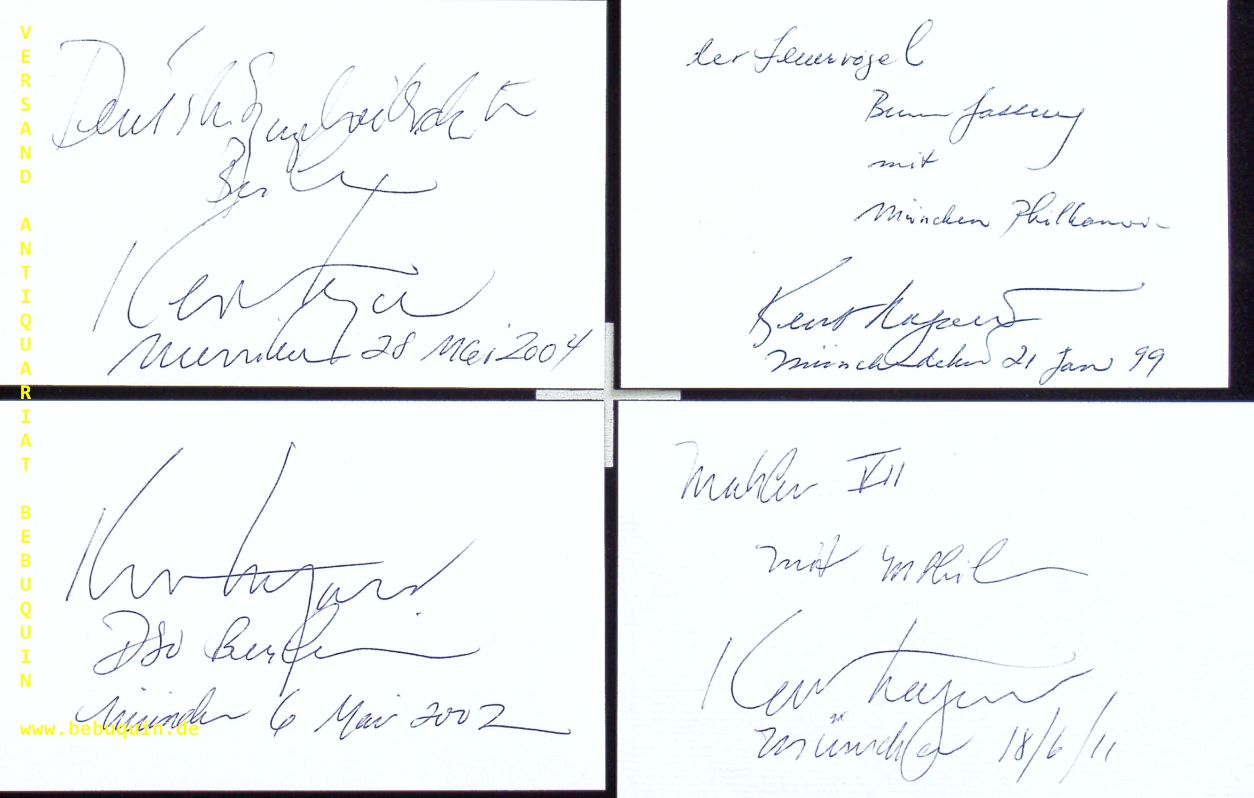 VERSAND ANTIQUARIAT BEBUQUIN
www.bebuquin.de
Berlin
Kent Nagano
28 Mai 2004
der Feuervogel
Fassung
mit
München Philharmon
Kent Nagano
21 Jan 99
Kent Nagano
DSO Berlin
München 6 Mai 2002
Mahler VII
mit MPhil
Kent Nagano
München 18/6/11